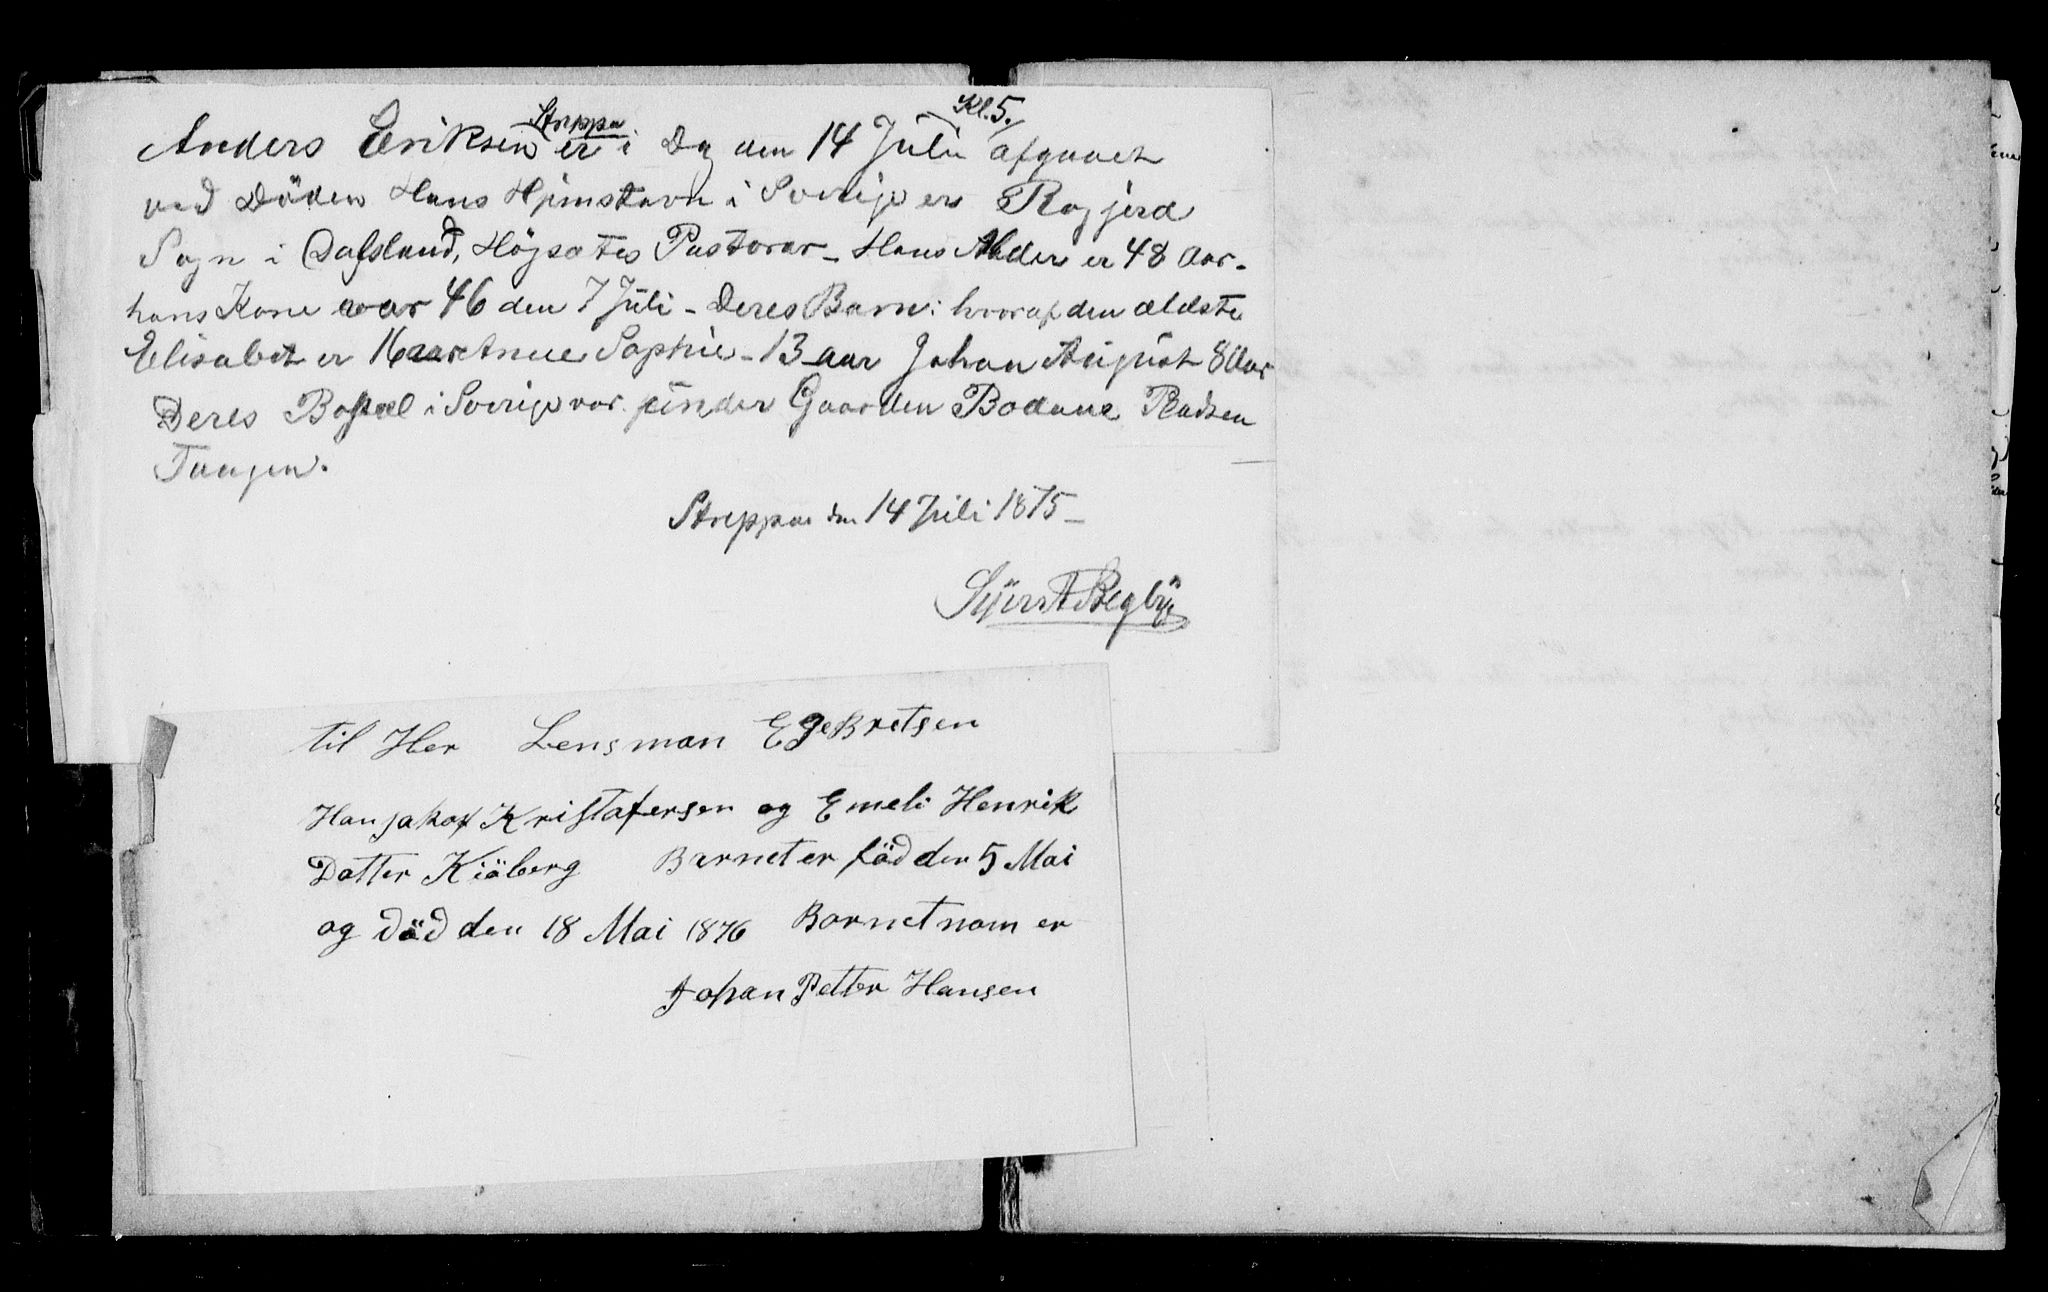 Anders Eriksen Streppa er i Dag den 14 Juli Kl. 5. afgaaet
ved Döden Hans Hjemstavn i Sverige er Rogjerd
Sogn i Dalsland, Högsotes Pastorar - Hans Alder er 48 Aar -
hans Kone var 46 den 7 Juli - Deres Barn: hvoraf den ældste
Elisabet er 16 aar Anne Sophie - 13 aar Johan August 8 Aar
Deres Bopæl i Sverige var under Gaarden Bodane
Tangen.
Streppa den 14 Juli 1875 -
Begby
til Her Lensman EgeBretsen
Hans jakop Kristafersen og Emeli Henrik
Datter Kiöberg Barnet er föd den 5 Mai
og död den 18 Mai 1876 Barnet nam er
Johan Petter Hansen